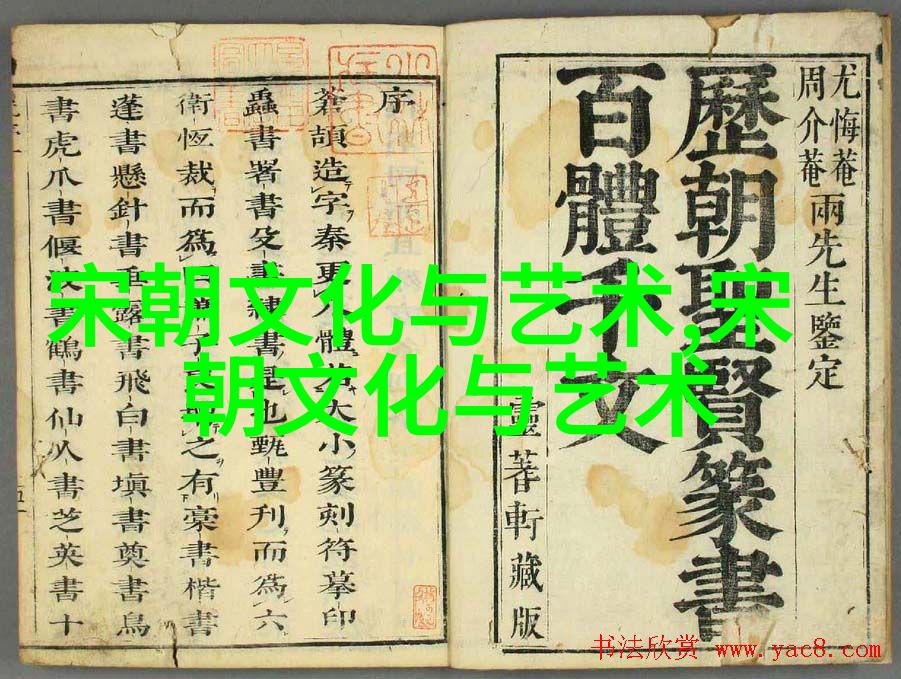 宋朝文化与艺术,宋
朝文化与艺术
尤悔菴
周介菴
兩先生鑒定
歷朝聖賢篆書
百體千文
靈蓍軒藏版
序
蒼頡造字秦更八體大小篆刻符摹印
蟲書署書殳書隸書是也甄豐刋而爲六
衛恆裁而爲子之有藁書楷書
蓬書懸針書垂露書飛白書塡書奠書鳥
書虎爪書偃波書鶴書仙人書芝英書十
书法欣赏 www.yac8.com